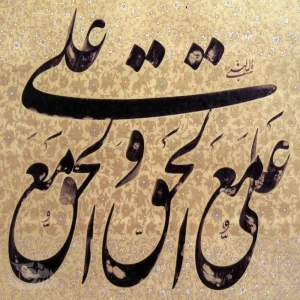 علی مع الحق و الحق مع
علی